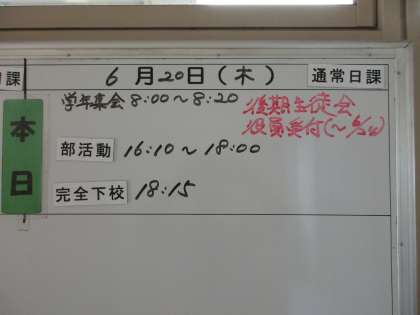 課 6月20日(木) 通常日課
本日
学年集会 8:00~8:20
後期生徒会
役員受付(~6/24)
部活動 16:10~18:00
完全下校 18:15